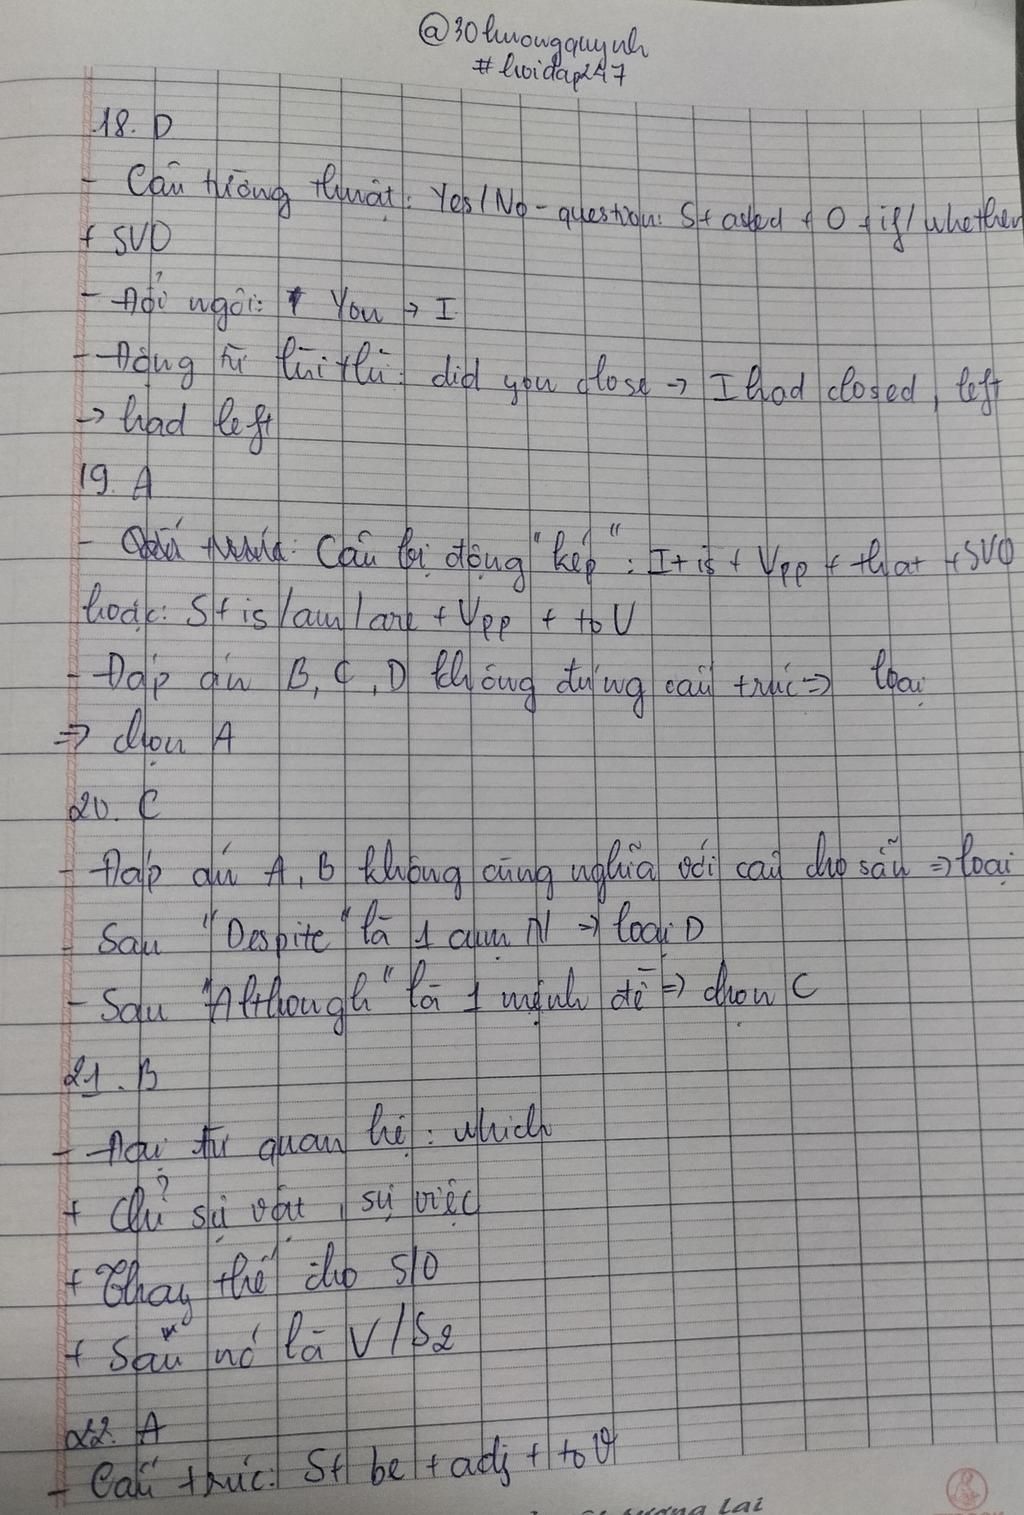 @30huongquynh
#hoidap247
18. D
- Câu tường thuật: Yes/No-question: S + asked + O + if/whether
+ SVO
- Đổi ngôi: You → I
- Động từ lùi thì: did you close → I had closed, left
→ had left
19. A
- Câu bị động "kép": It is + Vpp + that + SVO
hoặc: S + is/am/are + Vpp + to V
- Đáp án B, C, D không đúng cấu trúc ⇒ loại
⇒ chọn A
20. C
- Đáp án A, B không cùng nghĩa với câu cho sẵn ⇒ loại
- Sau "Despite" là 1 cụm N ⇒ loại D
- Sau "Although" là 1 mệnh đề ⇒ chọn C
21. B
- Đại từ quan hệ: which
+ Chỉ sự vật, sự việc
+ Thay thế cho S/O
+ Sau nó là V/S2
22. A
- Cấu trúc: S + be + adj + to V
lai